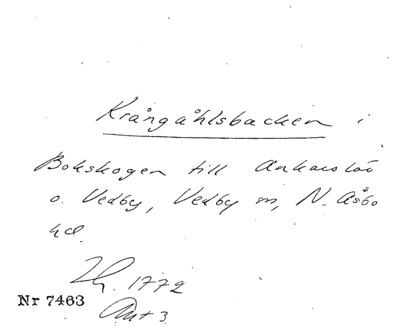 Krångåhlsbacken i
Bokskogen till Ankarslöv
o. Vedby, Vedby sn, N. Åsbo
hd.
1772
Nr 7463
Akt 3